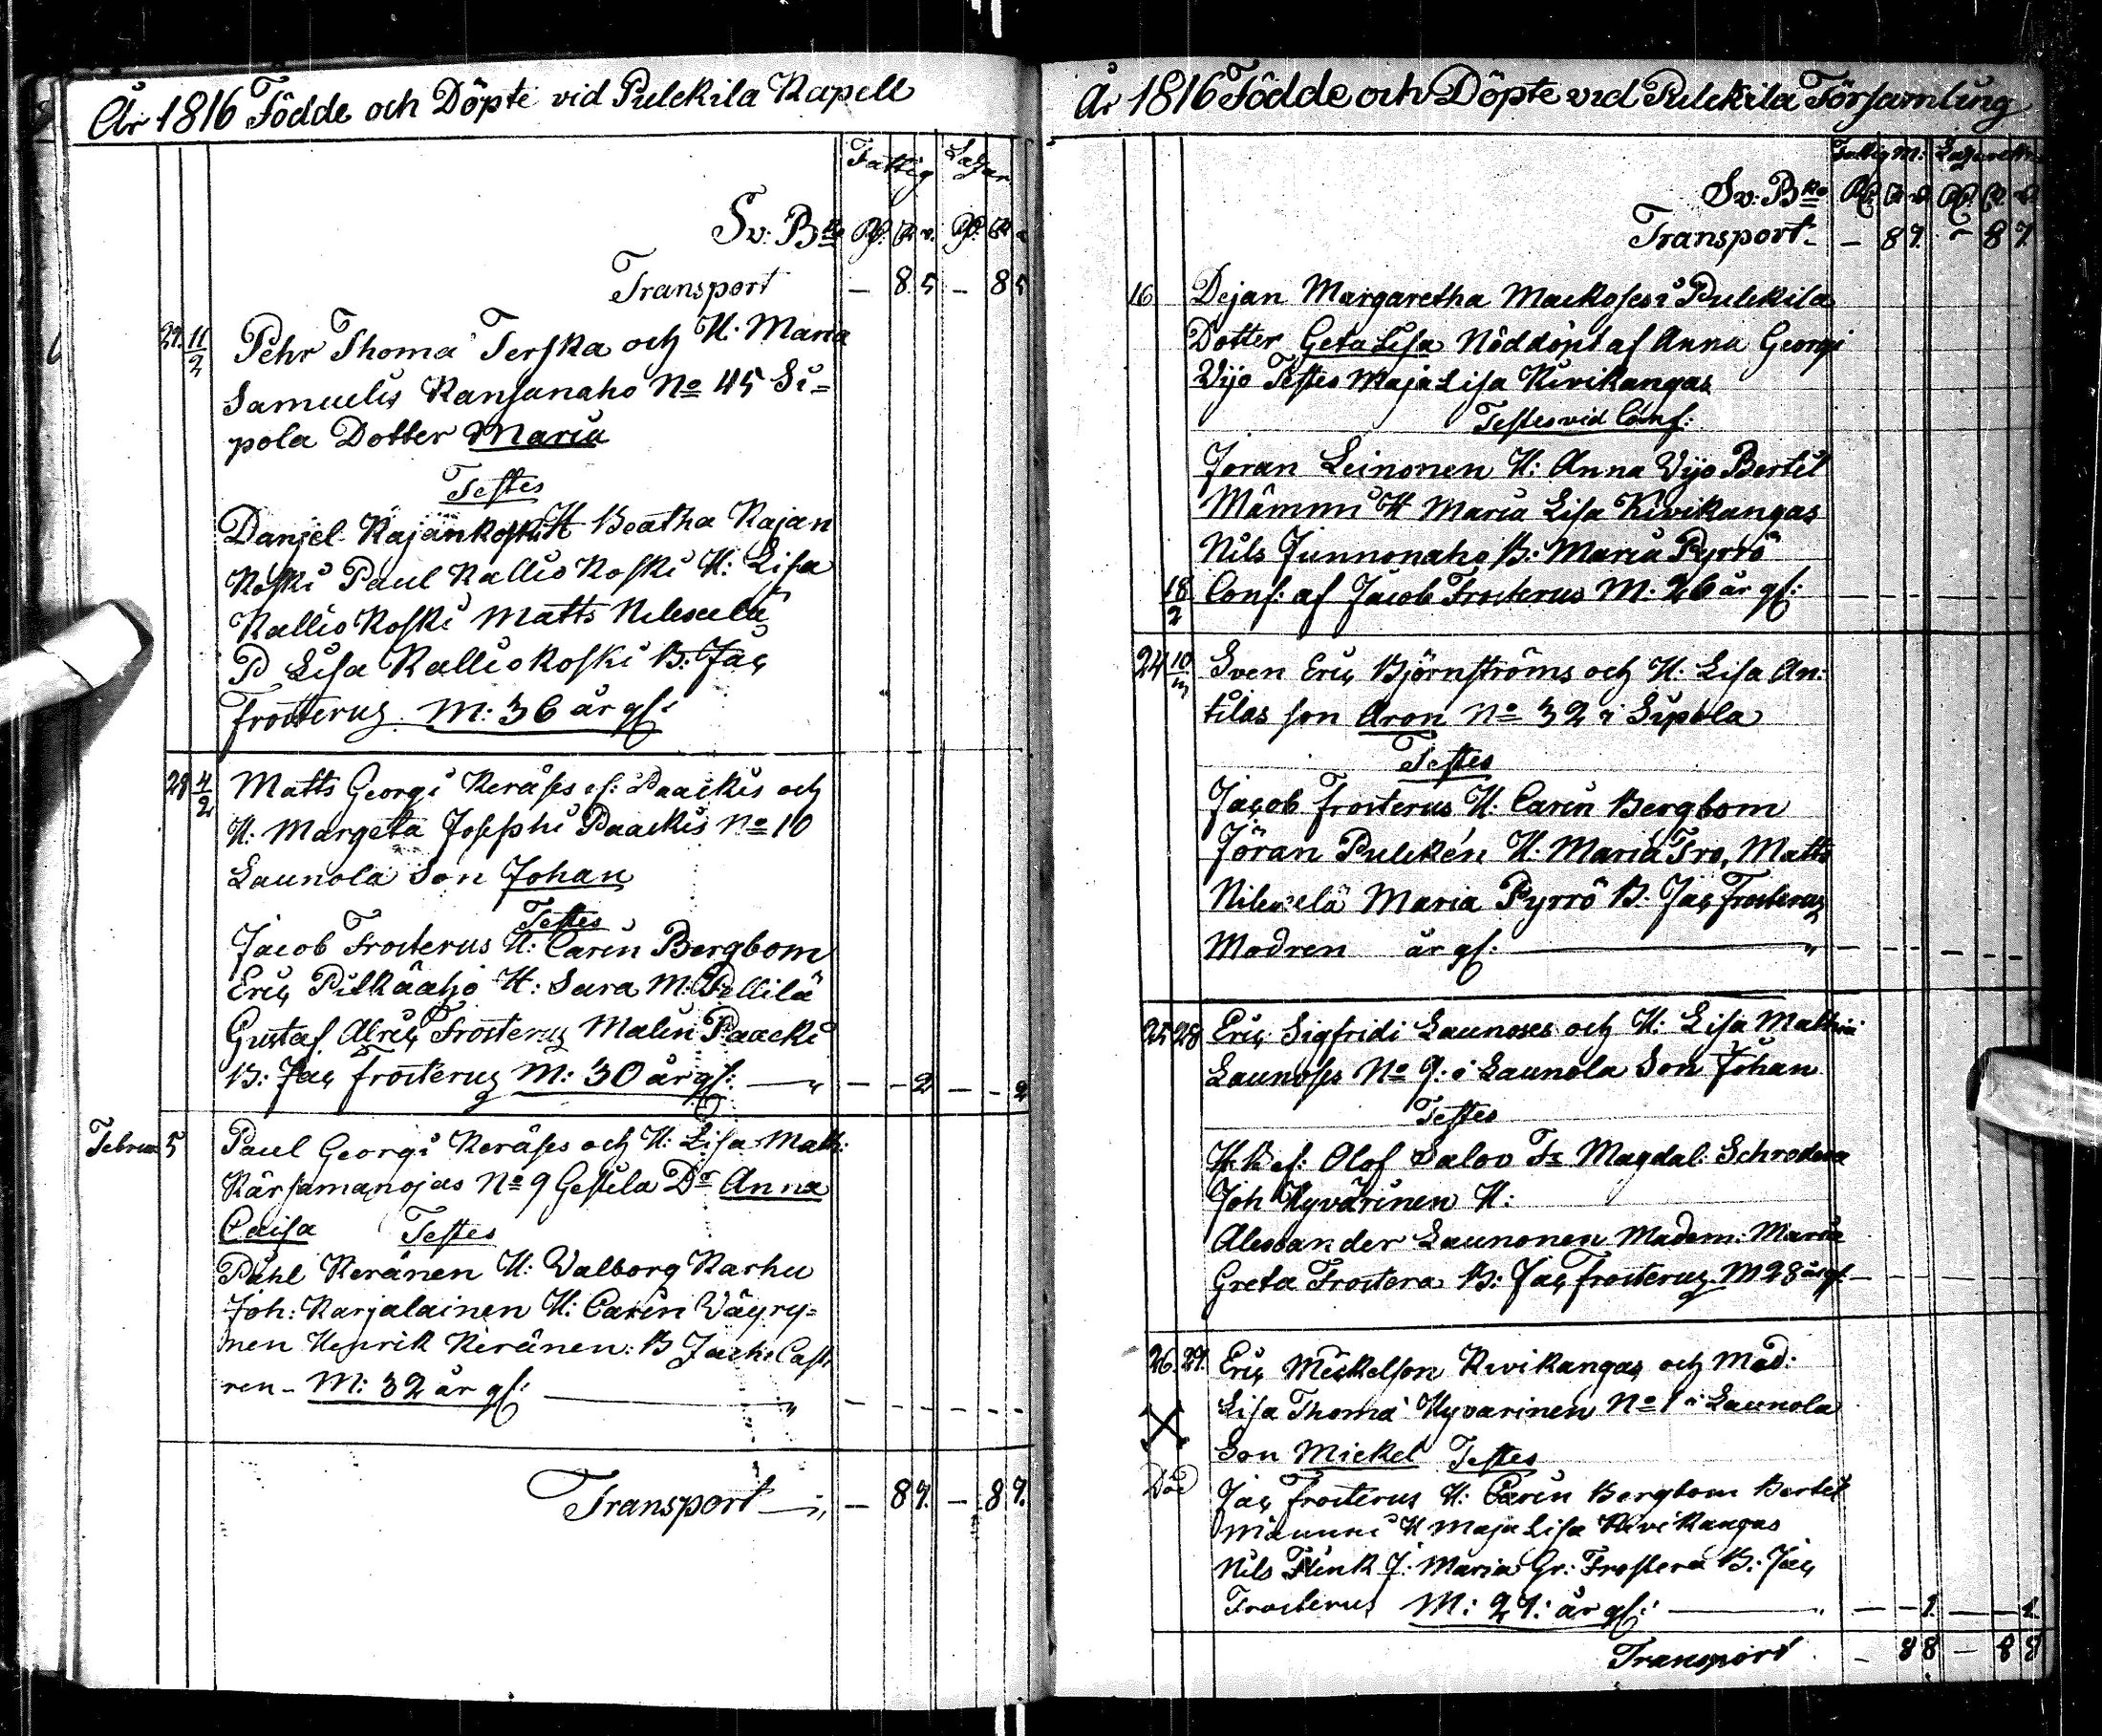 År 1816 Födde och Döpte vid Pulckila Kapell
Fattig Lazar
Sv: Bko
Transport — 8 5 — 8 5
27. 11/2 Pehr Thoma Terska och H. Maria
Samuelis Kansanaho No 45 Si=
pola Dotter Maria
Testes
Danjel Kajankoski H Beatha Kajan
Koski Paul Kallio Koski H: Lisa
Kallio Koski Matts
P Lisa Kalliokoski B: Jac
frosterus. M: 36 år gl:
28 4/2 Matts Georgi Keräses ef: Paackis och
H. Margeta Josephi Paackis No 10
Launola Son Johan
Testes
Jacob Frosterus H: Carin Bergbom
Eric Pitkäaho H: Sara M: Pellilä
Gustaf Alric Frosterus Malin Paacki
B: Jac frosterus M: 30 år gl: — " — - 2 — - 2
Februa 5 Paul Georgi Keräses och H: Lisa Math:
Kärsamanojas No 9 Gestila Dr Anna
Caisa Testes
Påhl Keränen H: Walborg Karhu
Joh: Karjalainen H: Carin Väyry=
nen Henrik Keränen: B Jach: Cast
ren - M: 32 år gl: — "
Transport — " — 8 7. — 8 7.
År 1816 Födde och Döpte vid Pulckila Församling
Fattig M: Lazarett
Sv: Bko
Transport - — 8 7. — 8 7.
16 Dejan Margaretha Mackoses i Pulckila
Dotter Geta Lisa Nöddöpt af Anna Georgi
Vijo Testes Maja Lisa Kivikangas
Testes vid Conf:
Joran Leinonen H: Anna Vijo Bertil
Mämmi H Maria Lisa Kivikangas
Nils Junnonaho B: Maria Pyrrö
18/2 Conf: af Jacob Frosterus M: 26 år gl:
24 10/m Sven Eric Björnströms och H: Lisa An:
tilas son Aron No 32 i Sipola
Testes
Jacob frosterus H: Carin Bergbom
Jöran Pulcken H: Maria Iro, Matts
Maria Pyrrö B. Jac Frosterus
Modren år gl: — "
25 28 Eric Sigfridi Launoses och H: Lisa Mathiæ
Launoses No 9: i Launola Son Johan
Testes
Olof Salov Fr Magdal: Schrodera
Joh Hyvärinen H:
Alexander Launonen Madem: Maria
Greta Frostera B: Jac frosterus M 28 år gl:
26. 27. Eric Mickelson Kivikangas och Mad:
Lisa Thoma Hyvarinen No 1 i Launola
Son Mickel Testes
Död Jac frosterus H: Carin Bergbom Bertil
Mämmi H Maja Lisa Kivikangas
Nils Flink J: Maria Gr: Frostera B: Jac
Frosterus M: 27: år gl: — " — - 1. — - 1.
Transport — 8 8 — 8 8